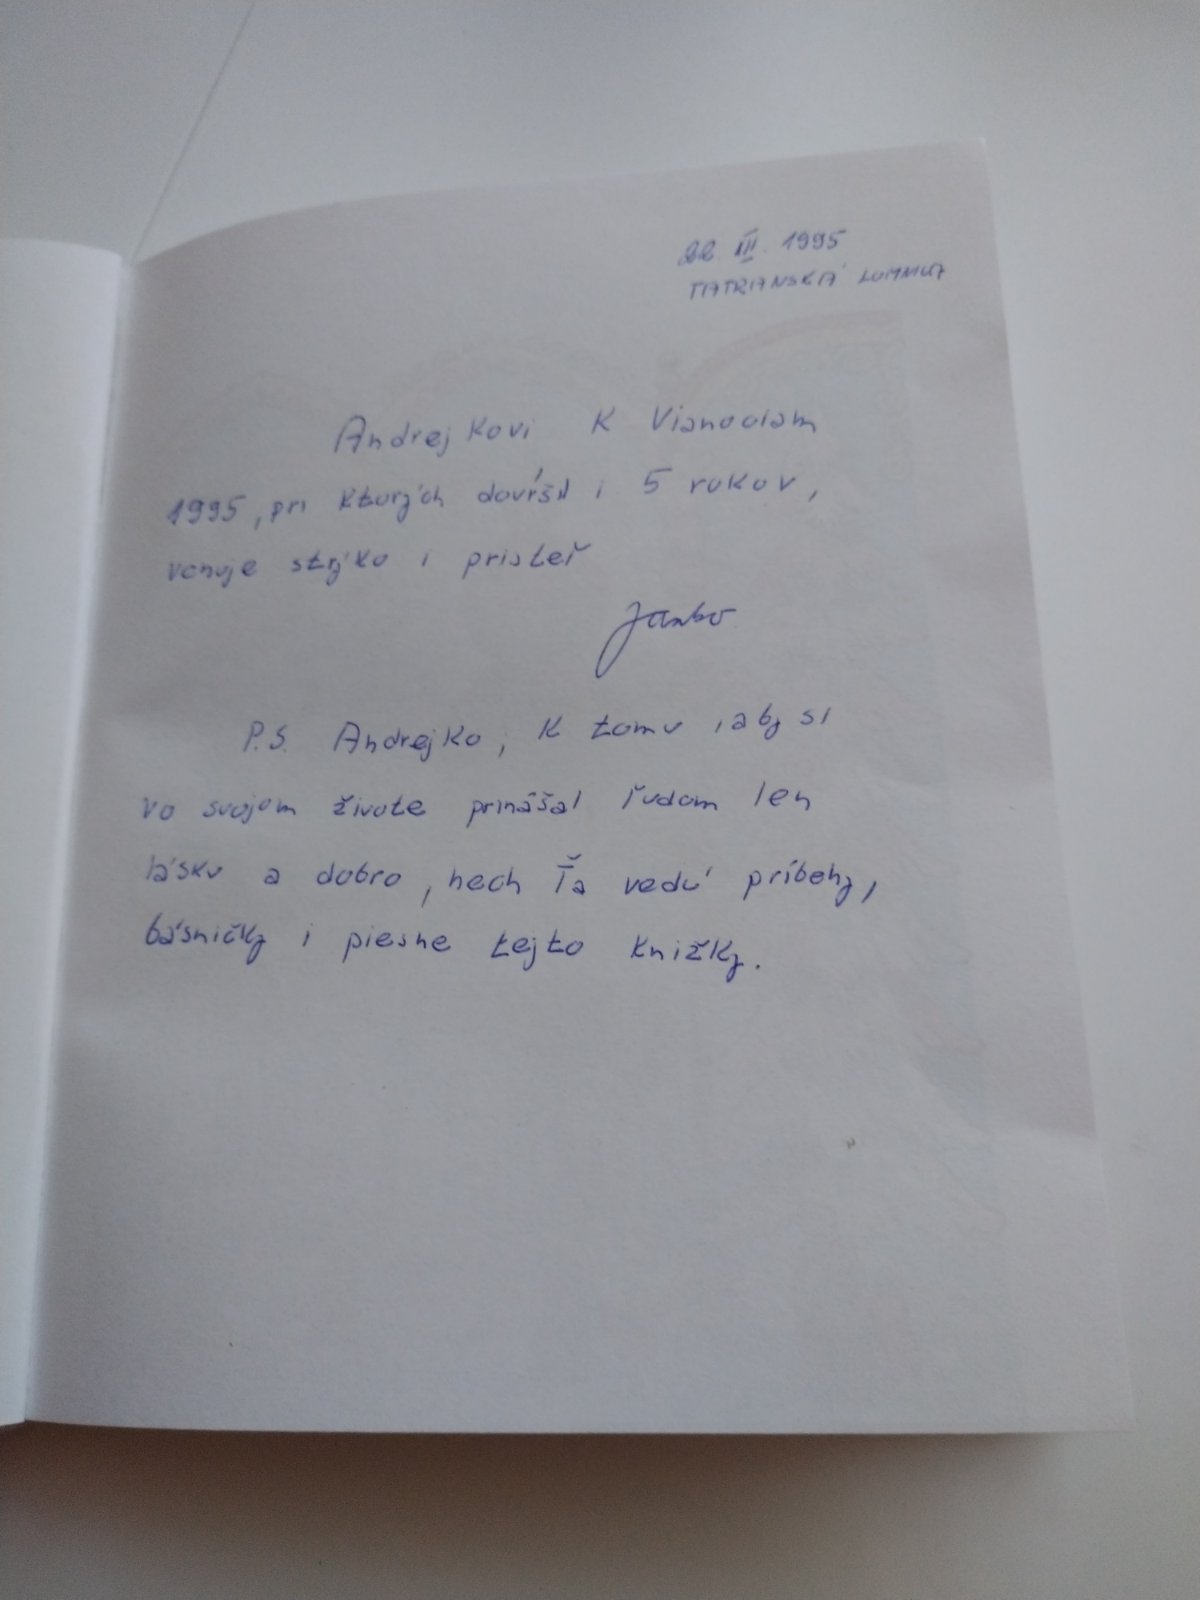 22. III. 1995
TATRANSKÁ LOMNICA
Andrejkovi k Vianociam
1995, pri ktorých dovŕšil i 5 rokov,
venuje strýko i priateľ
Janko
P.S. Andrejko, k tomu, aby si
vo svojom živote prinášal ľuďom len
lásku a dobro, nech Ťa vedú príbehy,
básničky i piesne tejto knižky.